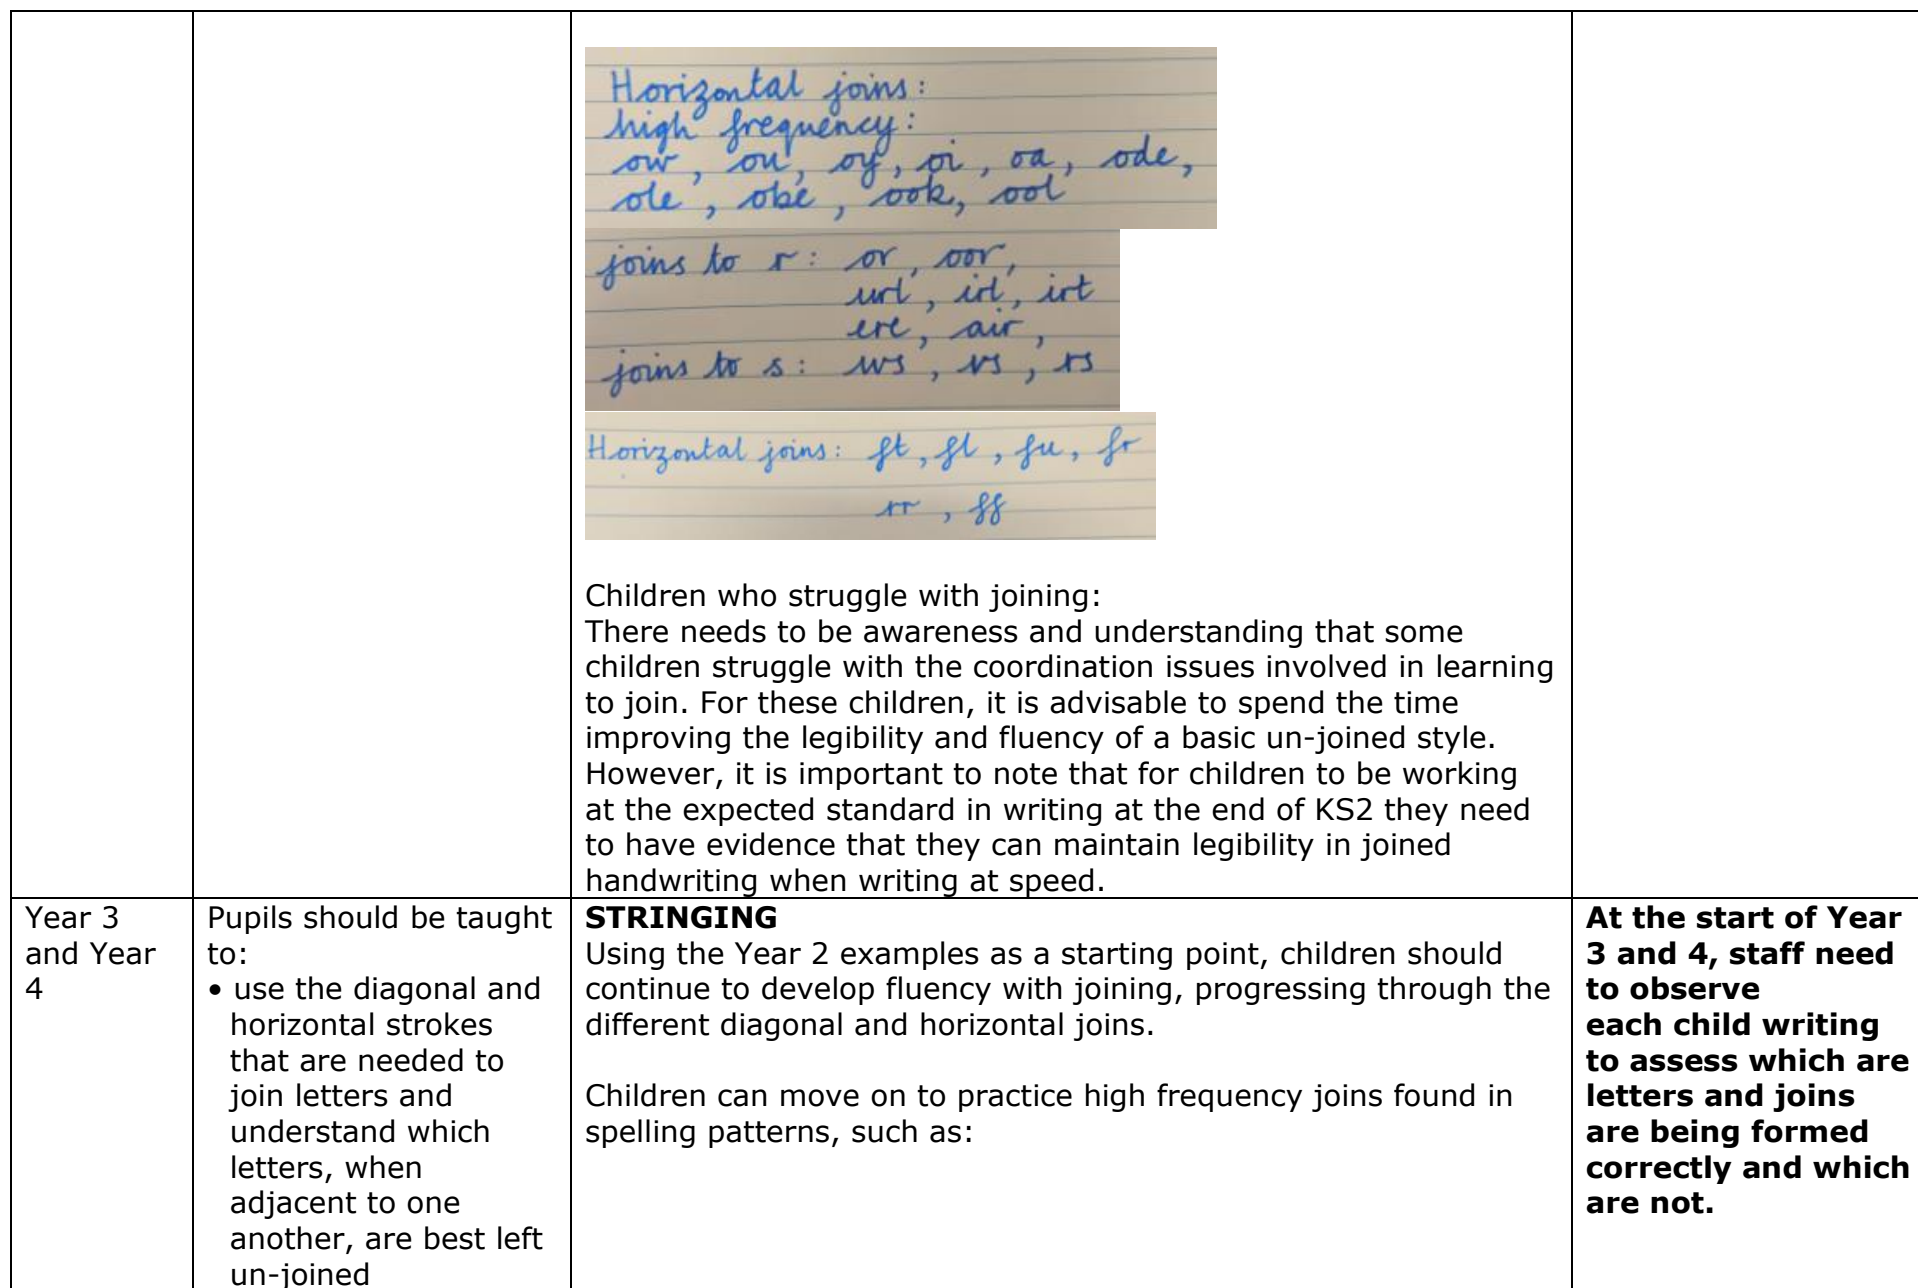 Horizontal joins:
high frequency:
ow, ou, oy, oi, oa, ode,
ole, obe, ook, ool
joins to r: or, oor,
url, irl, irt
ere, air,
joins to s: ws, vs, rs
Horizontal joins: ft, fl, fu, fr
rr, ff
Children who struggle with joining:
There needs to be awareness and understanding that some
children struggle with the coordination issues involved in learning
to join. For these children, it is advisable to spend the time
improving the legibility and fluency of a basic un-joined style.
However, it is important to note that for children to be working
at the expected standard in writing at the end of KS2 they need
to have evidence that they can maintain legibility in joined
handwriting when writing at speed.
Year 3
and Year
4
Pupils should be taught
to:
• use the diagonal and
horizontal strokes
that are needed to
join letters and
understand which
letters, when
adjacent to one
another, are best left
un-joined
STRINGING
Using the Year 2 examples as a starting point, children should
continue to develop fluency with joining, progressing through the
different diagonal and horizontal joins.
Children can move on to practice high frequency joins found in
spelling patterns, such as:
At the start of Year
3 and 4, staff need
to observe
each child writing
to assess which are
letters and joins
are being formed
correctly and which
are not.